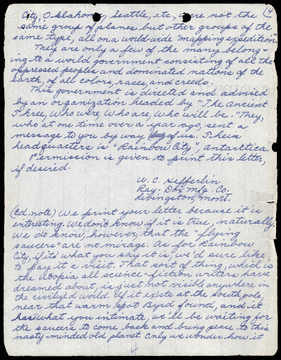 City, Oklahoma, Seattle, etc, were not the
same group of planes but other groups of the
same type, all on a world-wide mapping expedition.
They are only a few of the many belong-
ing to a world government consisting of all the
oppressed peoples and dominated nations of the
earth, of all colors, races, and creeds.
This government is directed and advised
by an organization headed by "The Ancient
Three, Who were Who are, Who will be." They,
who at one time over a year ago, sent a
message to you by way of us. Their
headquarters is "Rainbow City", Antarctica.
Permission is given to print this letter,
if desired.
W. C. Hefferlin
Ray-Dor Mfg. Co.
Livingston, Mont.
(Ed. note) We print your letter because it is
intresting. We don't know if it is true, naturally.
We do know, however, that the "flying
saucers" are no mirage. As for Rainbow
City, if it's what you say it is, we'd sure like
to pay it a visit. That sort of thing, which is
the utopia all science-fiction writers have
dreamed about, is just not visible anywhere in
the civilized world. If it exists at the south pole,
near that warm spot Byrd found, and it
has what you intimate, we'll be waiting for
the saucers to come back and bring peace to this
nasty-minded old planet. Only we wonder how it